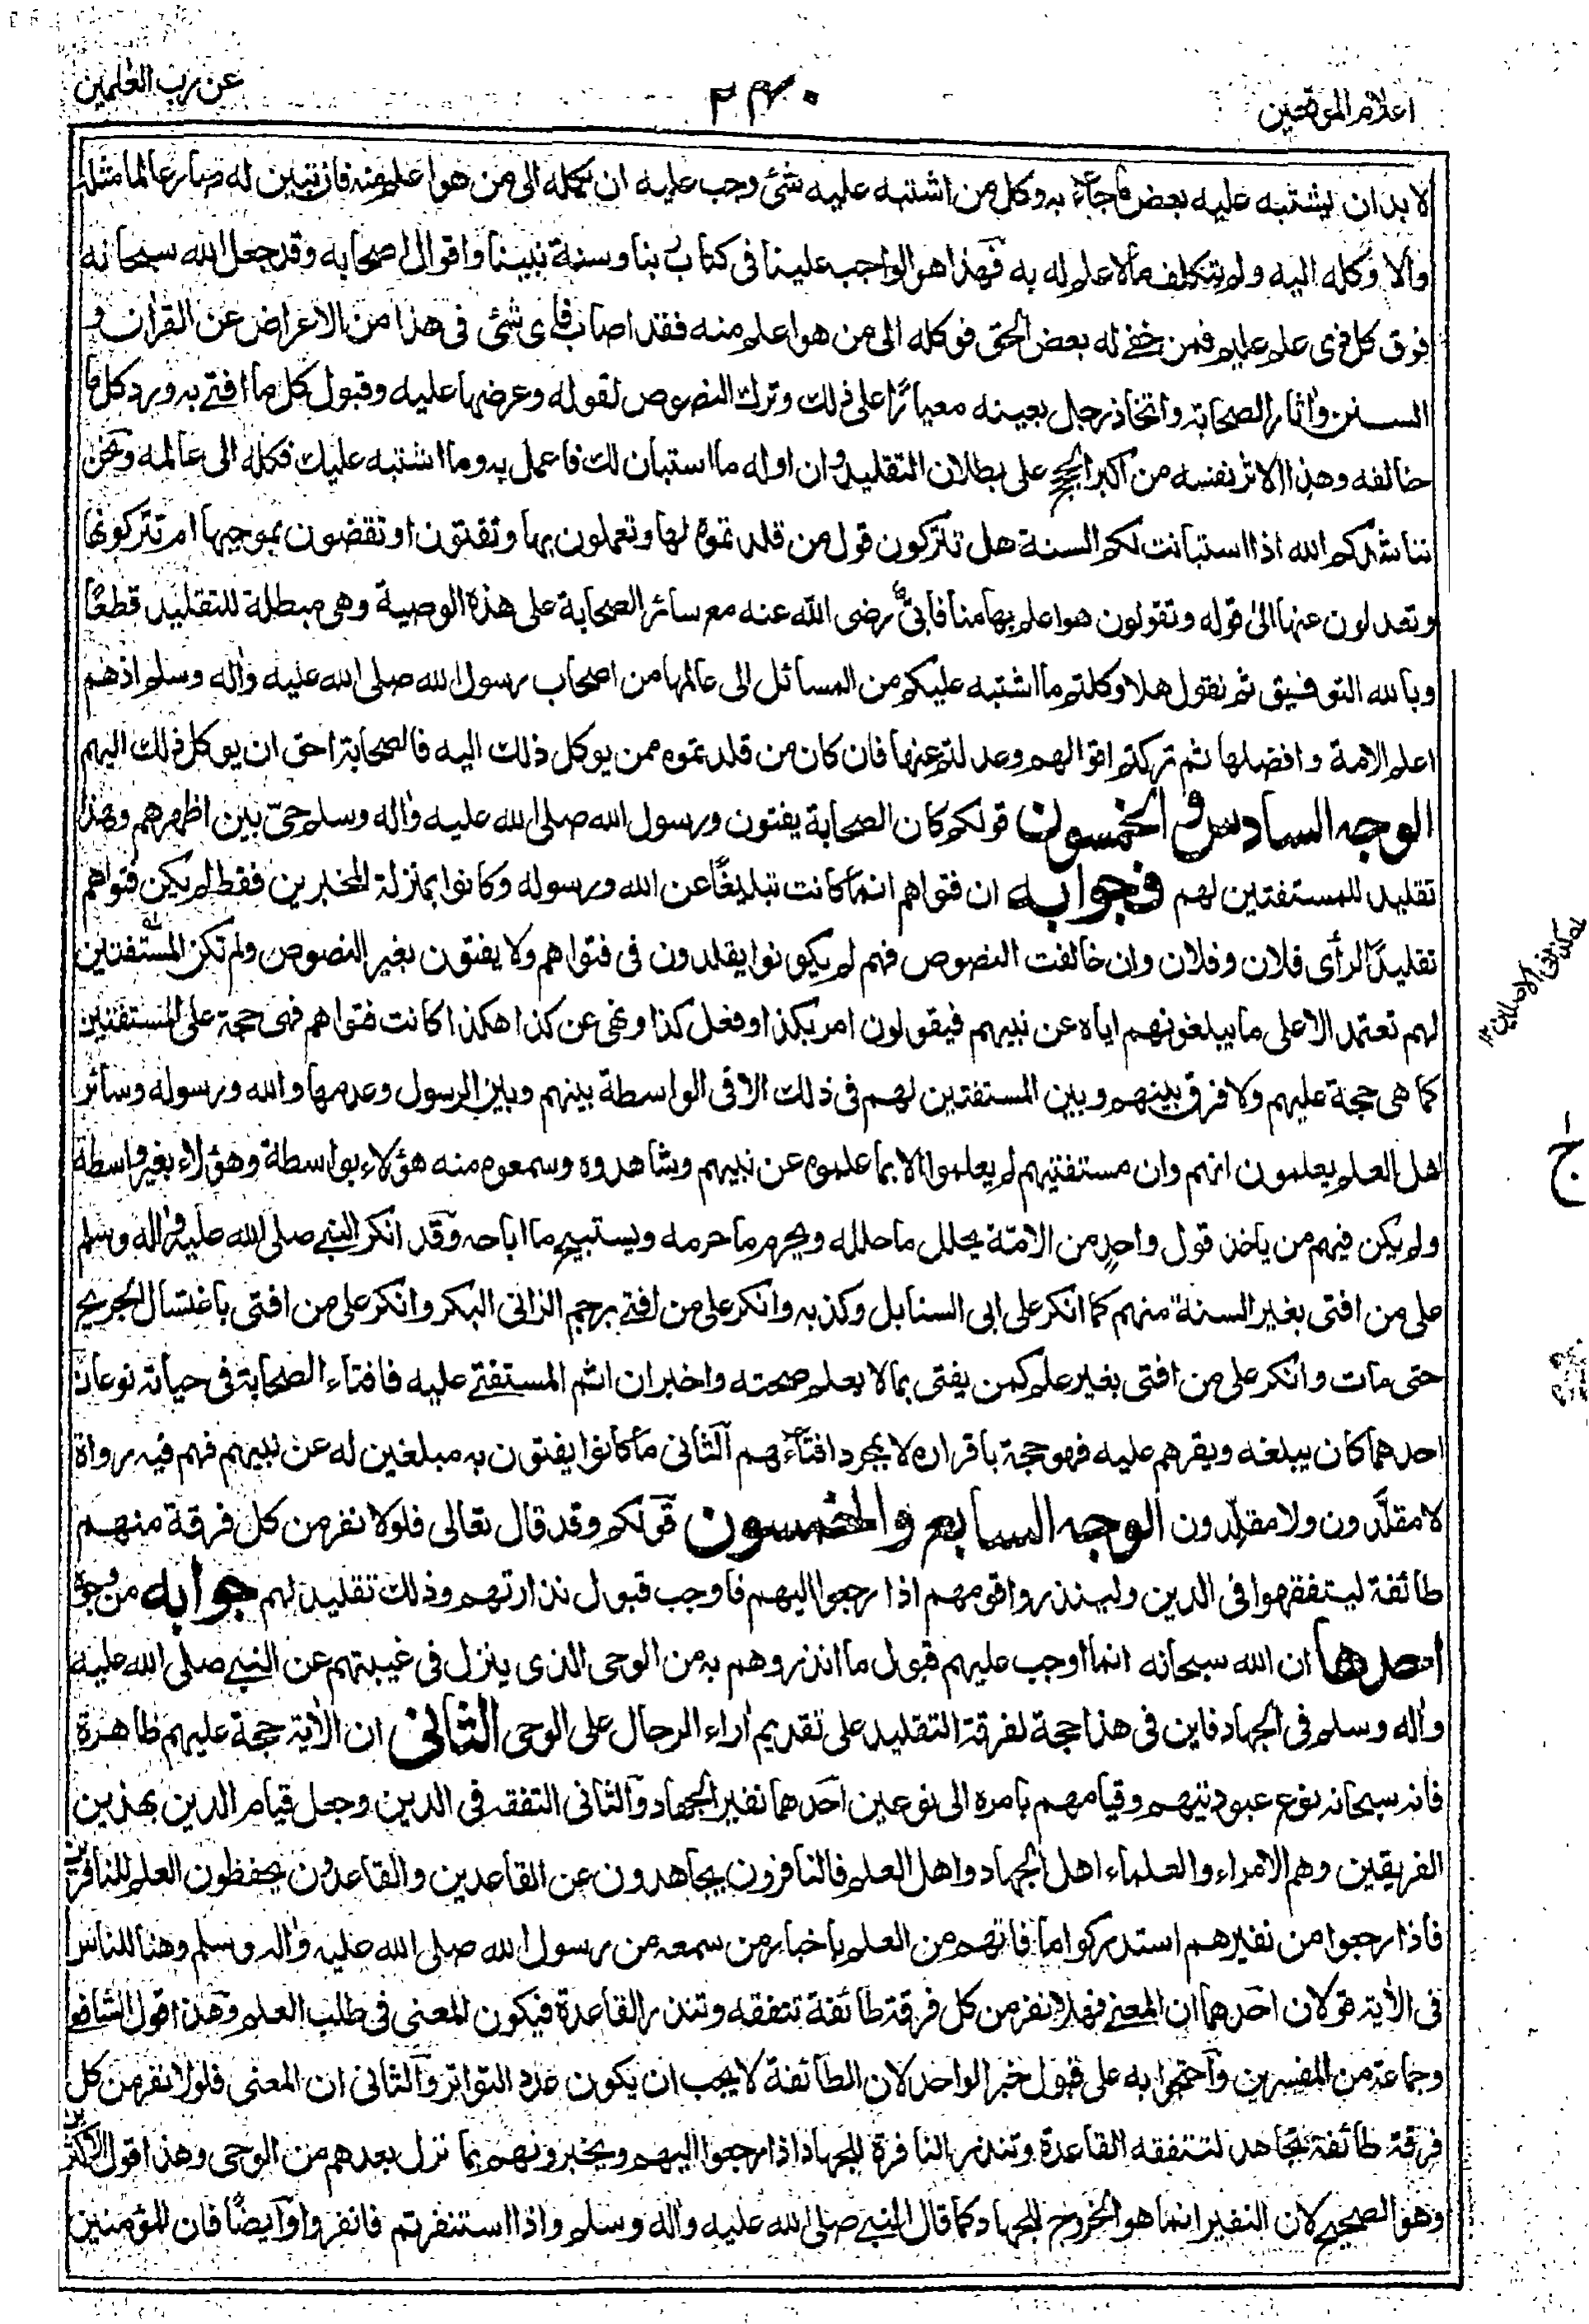 اعلام الموقعين
۲۴۰
عن رب العلمين
لا بدان يشتبه عليه بعض ما جاء به وكل من اشتبه عليه شئ وجب عليه ان يكله الى من هو اعلم منه فان تبين له صار عالما مثله
والا وكله اليه ولم يتكلف مالا علم له به فهذا هو الواجب علينا فى كتاب ربنا وسنة نبينا واقوال اصحابه وقد جعل الله سبحانه
فوق كل ذى علم عليم فمن خفے له بعض الحق فوكله الى من هو اعلم منه فقد اصاب فاى شئ فى هذا من الاعراض عن القرآن و
السنن واثار الصحابة واتخاذ رجل بعينه معيارًا على ذلك وترك النصوص لقوله وعرضها عليه وقبول كل ما افتے به ورد كل ما
خالفه وهذا الاثر نفسه من اكبر الحجج على بطلان التقليد وان اوله ما استبان لك فاعمل به وما اشتبه عليك فكله الى عالمه ونحن
نناشدكم الله اذا استبانت لكم السنة هل تتركون قول من قلدتموه لها وتعملون بها وتفتون او تقضون بموجبها ام تتركونها
وتعدلون عنها الى قوله وتقولون هو اعلم بها منا فابىّ رضى الله عنه مع سائر الصحابة على هذه الوصية وهى مبطلة للتقليد قطعًا
وبالله التوفيق ثم نقول هلا وكلتم ما اشتبه عليكم من المسائل الى عالمها من اصحاب رسول الله صلى الله عليه واٰله وسلم اذهم
اعلم الامة وافضلها ثم تركتم اقوالهم وعدلتم عنها فان كان من قلدتموه ممن يوكل ذلك اليه فالصحابة احق ان يوكل ذلك اليهم
الوجه السادس والخمسون قولكم كان الصحابة يفتون ورسول الله صلى الله عليه واٰله وسلم حىّ بين اظهرهم وهذا
تقليد للمستفتين لهم فجوابه ان فتواهم انما كانت تبليغًا عن الله ورسوله وكانوا بمنزلة المخبرين فقط لم يكن فتواهم
تقليدًا لرأى فلان وفلان وان خالفت النصوص فهم لم يكونوا يقلدون فى فتواهم ولا يفتون بغير النصوص ولم تكن المستفتين
لهم تعتمد الا على ما يبلغونهم اياه عن نبيهم فيقولون امر بكذا وفعل كذا ونهى عن كذا هكذا كانت فتواهم فهى حجة على المستفتين
كما هى حجة عليهم ولا فرق بينهم وبين المستفتين لهم فى ذلك الا فى الواسطة بينهم وبين الرسول وعدمها والله ورسوله وسائر
اهل العلم يعلمون انهم وان مستفتيهم لم يعلموا الا بما علموه عن نبيهم وشاهدوه وسمعوه منه هؤلاء بواسطة وهؤلاء بغير واسطة
ولم يكن فيهم من ياخذ قول واحدٍ من الامّة يحلل ما حلله ويحرم ما حرمه ويستبيح ما اباحه وقد انكر النبے صلى الله عليه واٰله وسلم
على من افتى بغير السنة منهم كما انكر على ابى السنابل وكذبه وانكر على من افتے برجم الزانى البكر وانكر على من افتى باغتسال الجريح
حتى مات وانكر على من افتى بغير علم كمن يفتى بما لا يعلم صحته واخبر ان اثم المستفتے عليه فافتاء الصحابة فى حياته نوعان
احدهما كان يبلغه ويقرهم عليه فهو حجة باقراره لا بمجرد افتاءهم الثانى ما كانوا يفتون به مبلغين له عن نبيهم فهم فيه رواة
لا مقلَّدون ولا مقلِّدون الوجه السابع والخمسون قولكم وقد قال تعالى فلولا نفر من كل فرقة منهم
طائفة ليتفقهوا فى الدين ولينذروا قومهم اذا رجعوا اليهم فاوجب قبول نذارتهم وذلك تقليد لهم جوابه من وجوه
احدها ان الله سبحانه انما اوجب عليهم قبول ما انذروهم به من الوحى الذى ينزل فى غيبتهم عن النبے صلى الله عليه
واٰله وسلم فى الجهاد فاين فى هذا حجة لفرقة التقليد على تقديم اٰراء الرجال على الوحى الثانى ان الاٰية حجة عليهم ظاهرة
فانه سبحانه نوع عبوديتهم وقيامهم بامره الى نوعين احدهما نفير الجهاد والثانى التفقه فى الدين وجعل قيام الدين بهذين
الفريقين وهم الامراء والعلماء اهل الجهاد واهل العلم فالنافرون يجاهدون عن القاعدين والقاعدون يحفظون العلم للنافرين
فاذا رجعوا من نفيرهم استدركوا ما فاتهم من العلم باخبار من سمعه من رسول الله صلى الله عليه واٰله وسلم وهنا للناس
فى الاٰية قولان احدهما ان المعنے فهلا نفر من كل فرقة طائفة تتفقه وتنذر القاعدة فيكون المعنى فى طلب العلم وهذا قول الشافعى
وجماعة من المفسرين واحتجوا به على قبول خبر الواحد لان الطائفة لا يجب ان يكون عدد التواتر والثانى ان المعنى فلولا نفر من كل
فرقة طائفة تجاهد لتتفقه القاعدة وتنذر النافرة للجهاد اذا رجعوا اليهم ويخبرونهم بما نزل بعدهم من الوحى وهذا قول الاكثرين
وهو الصحيح لان النفير انما هو الخروج للجهاد كما قال النبے صلى الله عليه واٰله وسلم واذا استنفرتم فانفروا وايضًا فان المؤمنين